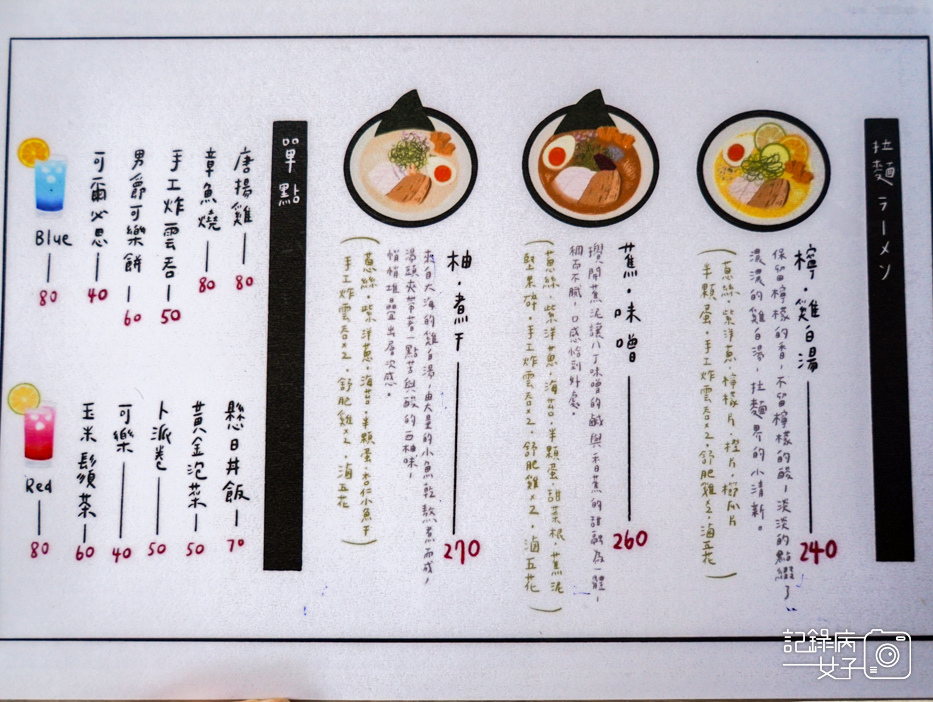 拉麵 ラーメン
檸・雞白湯 240
保留檸檬的香,不留檸檬的酸,淡淡的點綴了
濃濃的雞白湯,拉麵界的小清新。
(蔥絲.紫洋蔥.檸檬片.橙片.櫛瓜片
半顆蛋.手工炸雲吞x2.舒肥雞x2.滷五花)
蕉・味噌 260
攪開蕉泥讓八丁味噌的鹹與香蕉的甜融為一體,
稠而不膩,口感恰到好處。
(蔥絲.紫洋蔥.海苔.半顆蛋.甜菜根.蕉泥
堅果碎.手工炸雲吞x2.舒肥雞x2.滷五花)
柚・煮干 270
來自大海的雞白湯,由大量的小魚乾熬煮而成,
湯頭夾帶著一點苦與酸的西柚味,
悄悄堆疊出層次感。
(蔥絲.紫洋蔥.海苔.半顆蛋.杏仁小魚干
手工炸雲吞x2.舒肥雞x2.滷五花)
單點
唐揚雞 80
章魚燒 80
手工炸雲吞 50
男爵可樂餅 60
可爾必思 40
Blue 80
懸日丼飯 70
黃金泡菜 50
卜派卷 50
可樂 40
玉米鬚茶 60
Red 80
記錄病
女子